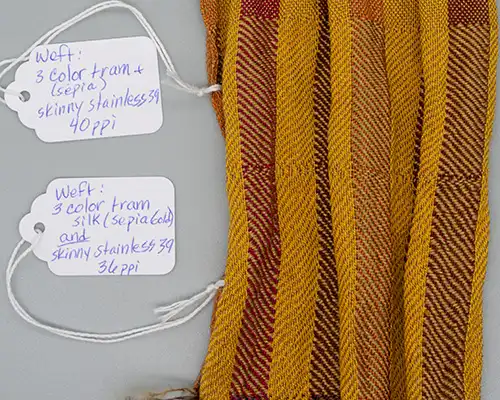 Weft:
3 color tram +
(sepia)
skinny stainless 39
40 ppi
Weft:
3 color tram
silk (sepia Gold)
and
skinny stainless 39
36 ppi